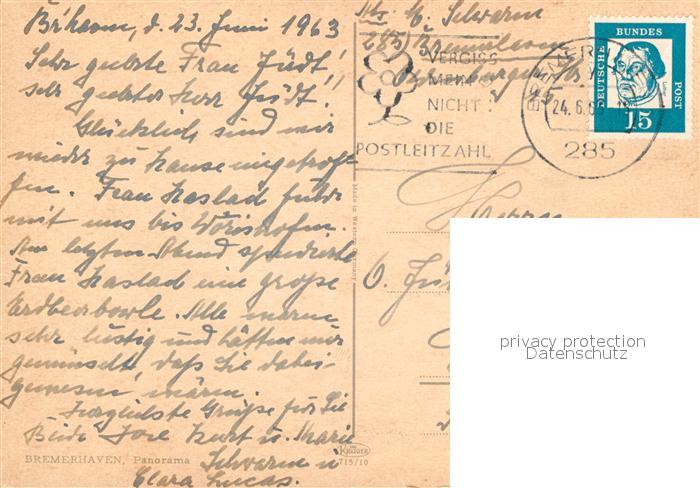 Br'haven, d. 23. Juni 1963
Sehr geehrte Frau Jüdt,
sehr geehrter Herr Jüdt,
Glücklich sind wir
wieder zu Hause eingetrof-
fen. Frau Haslad fuhr
mit uns bis Wörishofen.
Am letzten Abend spendierte
Frau Haslad eine große
Erdbeerbowle. Alle waren
sehr lustig und hätten nur
gewünscht, daß Sie dabei-
gewesen wären.
Herzlichste Grüße für Sie
Beide Kurt u. Marie
Schwarm u
Clara Lucas.
BREMERHAVEN, Panorama
KRÜGER
715/10
Made in Western Germany
Schwarm
285)
VERGISS
MEIN
NICHT:
DIE
POSTLEITZAHL
24.6.6
285
DEUTSCHE BUNDESPOST
15
Herrn
privacy protection
Datenschutz